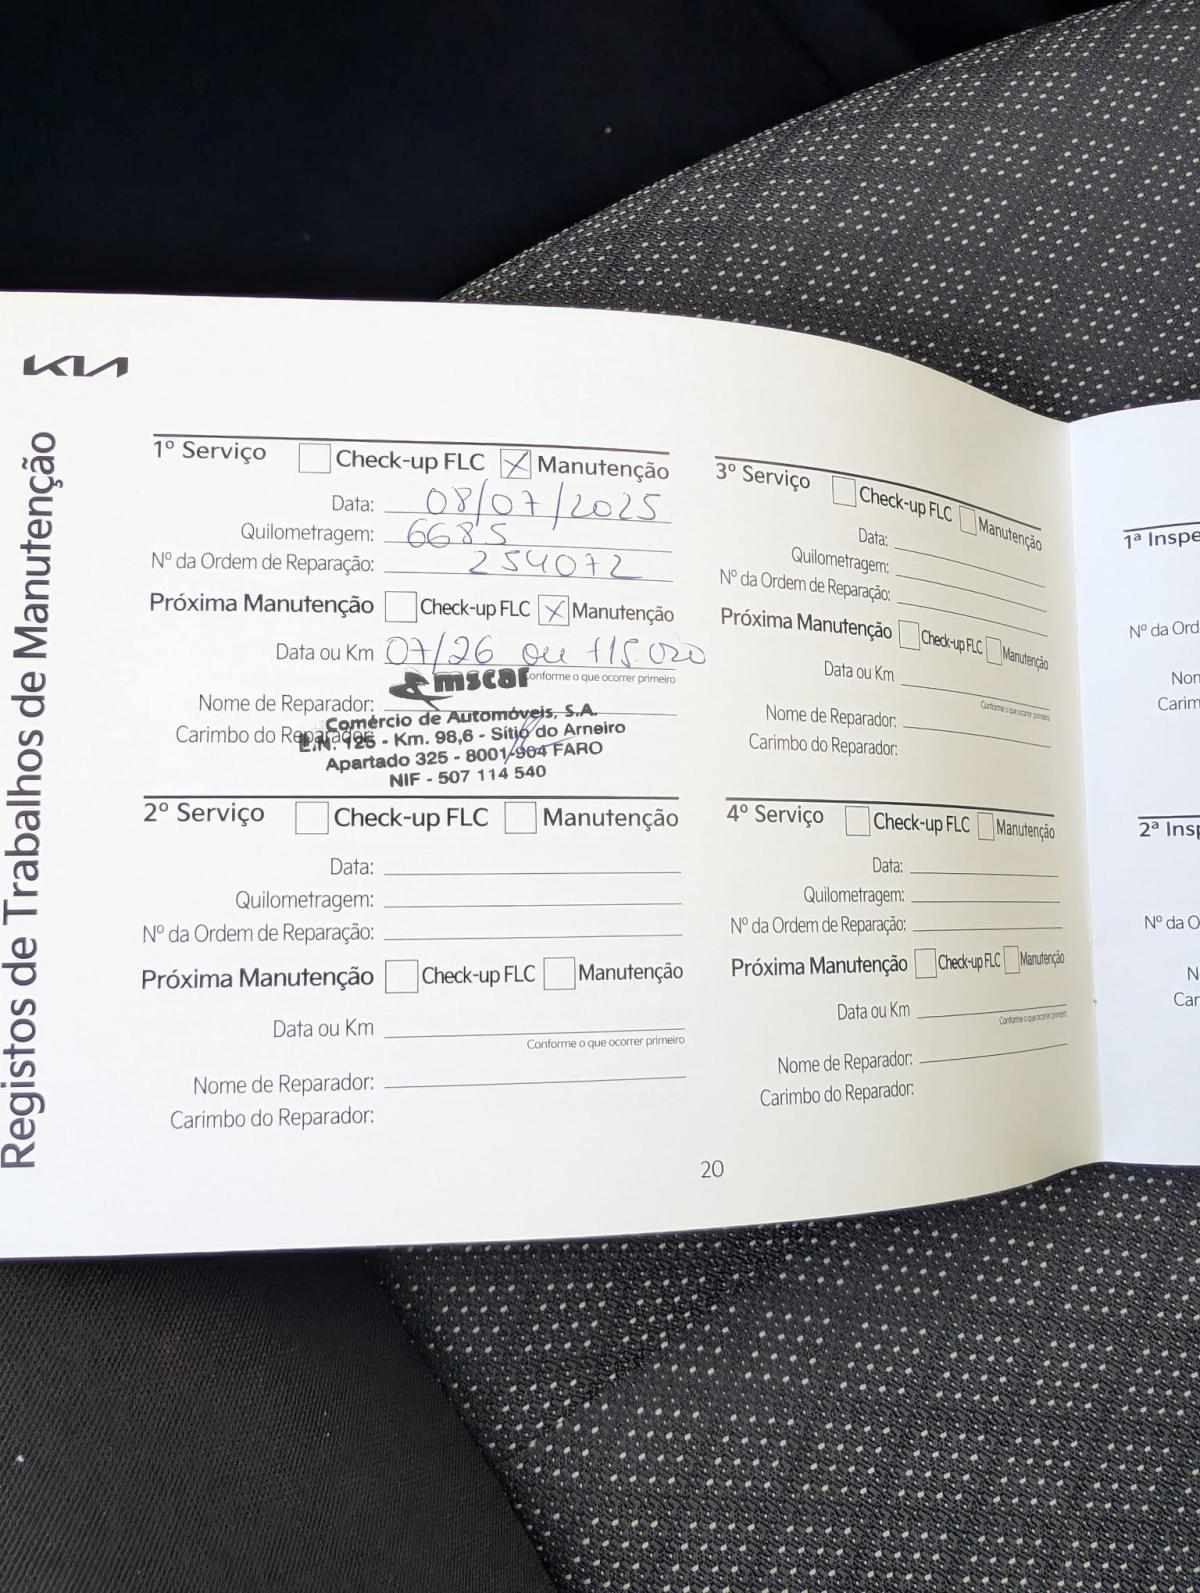 KIA
Registos de Trabalhos de Manutenção
1º Serviço Check-up FLC X Manutenção
Data: 08/07/2025
Quilometragem: 6685
Nº da Ordem de Reparação: 254072
Próxima Manutenção Check-up FLC X Manutenção
Data ou Km 07/26 ou +15.000
Conforme o que ocorrer primeiro
Nome de Reparador:
Carimbo do Reparador:
mscar
Comércio de Automóveis, S.A.
E.N. 125 - Km. 98,6 - Sítio do Arneiro
Apartado 325 - 8001-904 FARO
NIF - 507 114 540
2º Serviço Check-up FLC Manutenção
Data:
Quilometragem:
Nº da Ordem de Reparação:
Próxima Manutenção Check-up FLC Manutenção
Data ou Km
Conforme o que ocorrer primeiro
Nome de Reparador:
Carimbo do Reparador:
3º Serviço Check-up FLC Manutenção
Data:
Quilometragem:
Nº da Ordem de Reparação:
Próxima Manutenção Check-up FLC Manutenção
Data ou Km
Conforme o que ocorrer primeiro
Nome de Reparador:
Carimbo do Reparador:
4º Serviço Check-up FLC Manutenção
Data:
Quilometragem:
Nº da Ordem de Reparação:
Próxima Manutenção Check-up FLC Manutenção
Data ou Km
Conforme o que ocorrer primeiro
Nome de Reparador:
Carimbo do Reparador:
20
1ª Inspe
Nº da Ord
Nom
Carim
2ª Insp
Nº da O
N
Car